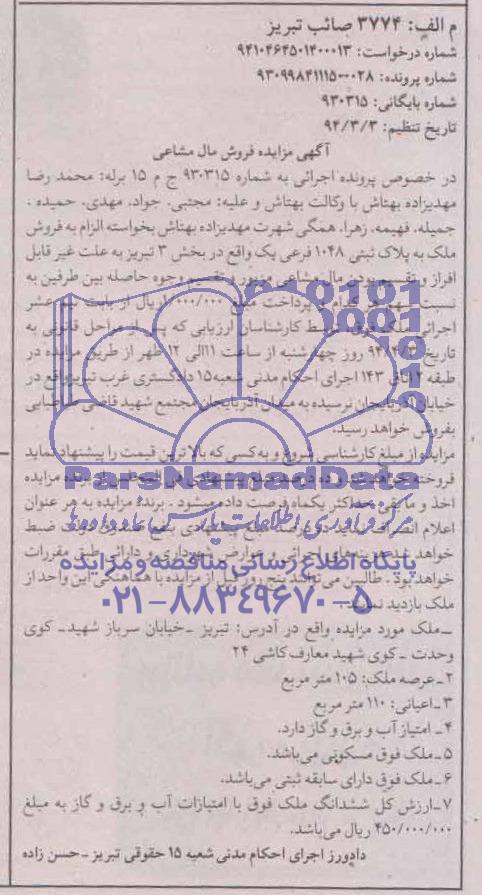 م الف: ۳۷۷۴ صائب تبریز
شماره درخواست: ۹۴۱۰۴۶۴۵۰۱۴۰۰۰۱۳
شماره پرونده: ۹۳۰۹۹۸۴۱۱۱۵۰۰۰۲۸
شماره بایگانی: ۹۳۰۳۱۵
تاریخ تنظیم: ۹۴/۳/۳
آگهی مزایده فروش مال مشاعی
در خصوص پرونده اجرائی به شماره ۹۳۰۳۱۵ ج م ۱۵ برله: محمد رضا
مهدیزاده بهتاش با وکالت بهتاش و علیه: مجتبی. جواد. مهدی. حمیده.
جمیله. فهیمه. زهرا. همگی شهرت مهدیزاده بهتاش بخواسته الزام به فروش
ملک به پلاک ثبتی ۱۰۴۸ فرعی یک واقع در بخش ۳ تبریز به علت غیر قابل
افراز و تقسیم بودن مال مشاعی مزبور و تقسیم وجوه حاصله بین طرفین به
نسبت سهم هر کدام و پرداخت مبلغ ریال از بابت نیم عشر
اجرائی ملک فوق توسط کارشناسان ارزیابی که پس از مراحل قانونی به
تاریخ روز چهارشنبه از ساعت ۱۱الی ۱۲ ظهر از طریق مزایده در
طبقه ۲ اتاق ۱۴۳ اجرای احکام مدنی شعبه۱۵ دادگستری غرب تبریز واقع در
خیابان آذربایجان نرسیده به میدان آذربایجان مجتمع شهید قاضی طباطبایی
بفروش خواهد رسید.
مزایده از مبلغ کارشناسی شروع و به کسی که بالاترین قیمت را پیشنهاد نماید
فروخته خواهد شد و ده درصد مبلغ پیشنهادی از برنده مزایده
اخذ و مابقی حداکثر یکماه فرصت داده میشود. برنده مزایده به هر عنوان
اعلام انصراف نماید ده درصد مبلغ پیشنهادی بنفع دولت ضبط
خواهد شد هزینه‌های اجرائی و عوارض شهرداری و دارائی طبق مقررات
خواهد بود. طالبین می‌توانند پنج روز قبل از مزایده با هماهنگی این واحد از
ملک بازدید نمایند.
ـ ملک مورد مزایده واقع در آدرس: تبریز ـ خیابان سرباز شهید ـ کوی
وحدت ـ کوی شهید معارف کاشی ۲۴
۲ـ عرصه ملک: ۱۰۵ متر مربع
۳ـ اعیانی: ۱۱۰ متر مربع
۴ـ امتیاز آب و برق و گاز دارد.
۵ـ ملک فوق مسکونی می‌باشد.
۶ـ ملک فوق دارای سابقه ثبتی می‌باشد.
۷ـ ارزش کل ششدانگ ملک فوق با امتیازات آب و برق و گاز به مبلغ
۴۵۰/۰۰۰/۰۰۰ ریال می‌باشد.
دادورز اجرای احکام مدنی شعبه ۱۵ حقوقی تبریز ـ حسن زاده
ParsNamadData
مرکز فرآوری اطلاعات پارس نماد داده‌ها
پایگاه اطلاع رسانی مناقصه و مزایده
۰۲۱-۸۸۳۴۹۶۷۰-۵